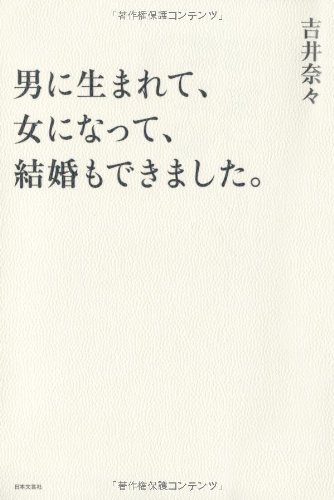 「著作権保護コンテンツ」
吉井奈々
男に生まれて、
女になって、
結婚もできました。
日本文芸社
「著作権保護コンテンツ」